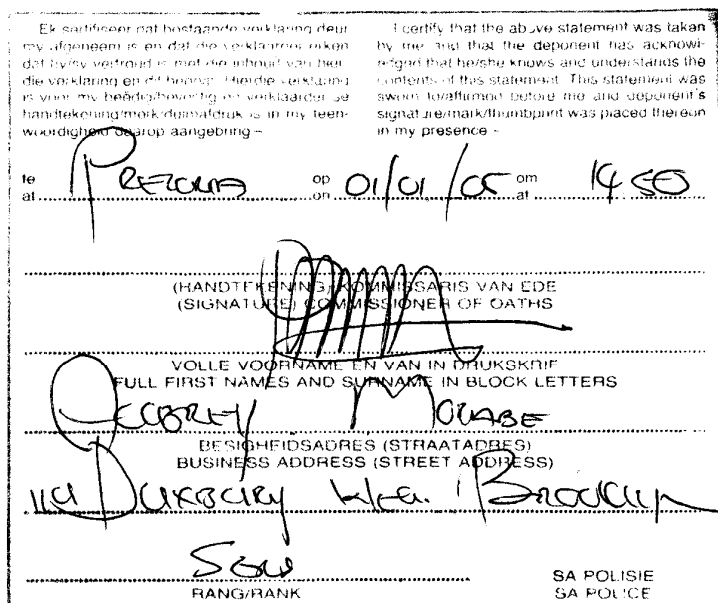 Ek sertifiseer dat bostaande verklaring deur
my afgeneem is en dat die verklaarder erken
dat hy/sy vertroud is met die inhoud van hier-
die verklaring en dit begryp. Hierdie verklaring
is voor my beëdig/bevestig en verklaarder se
handtekening/merk/duimafdruk is in my teen-
woordigheid daarop aangebring –
I certify that the above statement was taken
by me and that the deponent has acknowl-
edged that he/she knows and understands the
contents of this statement. This statement was
sworn to/affirmed before me and deponent's
signature/mark/thumbprint was placed thereon
in my presence –
te PRETORIA op 01/01/05 om 14:50
at on at
(HANDTEKENING) KOMMISSARIS VAN EDE
(SIGNATURE) COMMISSIONER OF OATHS
VOLLE VOORNAME EN VAN IN DRUKSKRIF
FULL FIRST NAMES AND SURNAME IN BLOCK LETTERS
BESIGHEIDSADRES (STRAATADRES)
BUSINESS ADDRESS (STREET ADDRESS)
DUXBURY BROOKLYN
RANG/RANK
SA POLISIE
SA POLICE